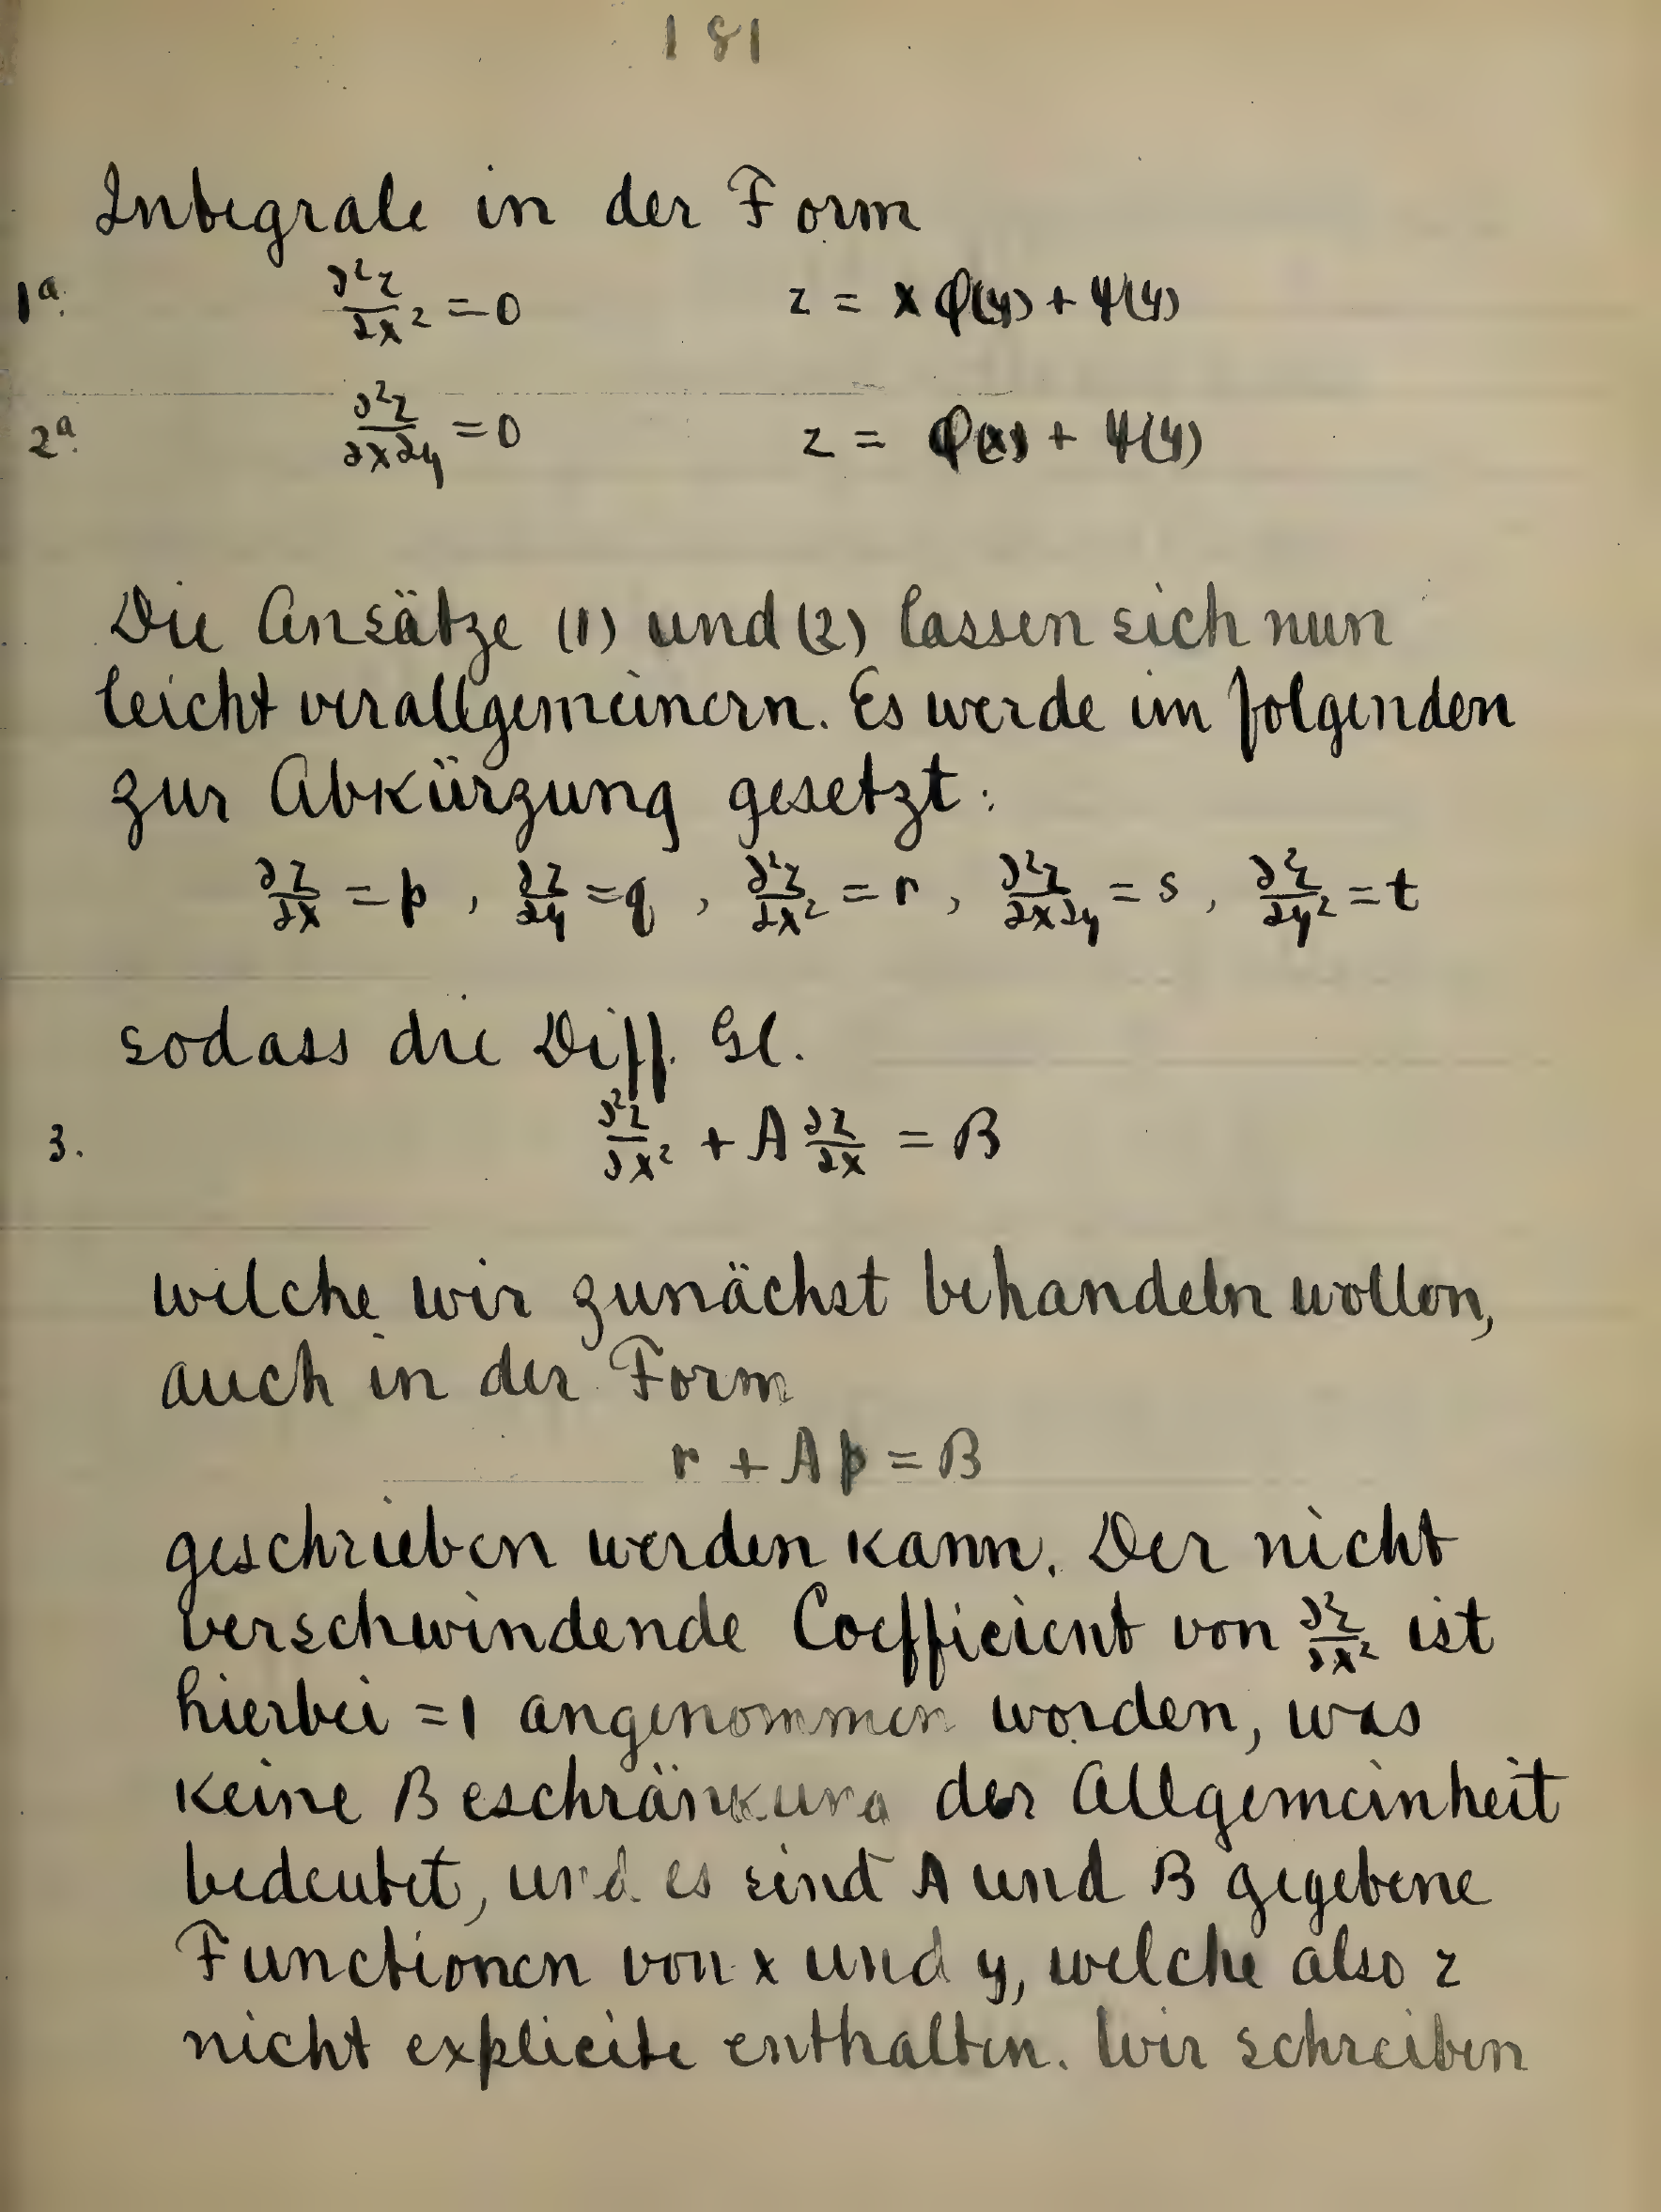 181
Integrale in der Form
1a. ∂²z/∂x² = 0 z = x φ(y) + ψ(y)
2a. ∂²z/∂x∂y = 0 z = φ(x) + ψ(y)
Die Ansätze (1) und (2) lassen sich nun
leicht verallgemeinern. Es werde im folgenden
zur Abkürzung gesetzt:
∂z/∂x = p, ∂z/∂y = q, ∂²z/∂x² = r, ∂²z/∂x∂y = s, ∂²z/∂y² = t
sodass die Diff. Gl.
3. ∂²z/∂x² + A ∂z/∂x = B
welche wir zunächst behandeln wollen,
auch in der Form
r + Ap = B
geschrieben werden kann. Der nicht
verschwindende Coefficient von ∂²z/∂x² ist
hierbei = 1 angenommen worden, was
keine Beschränkung der Allgemeinheit
bedeutet, und es sind A und B gegebene
Functionen von x und y, welche also z
nicht explicite enthalten. Wir schreiben